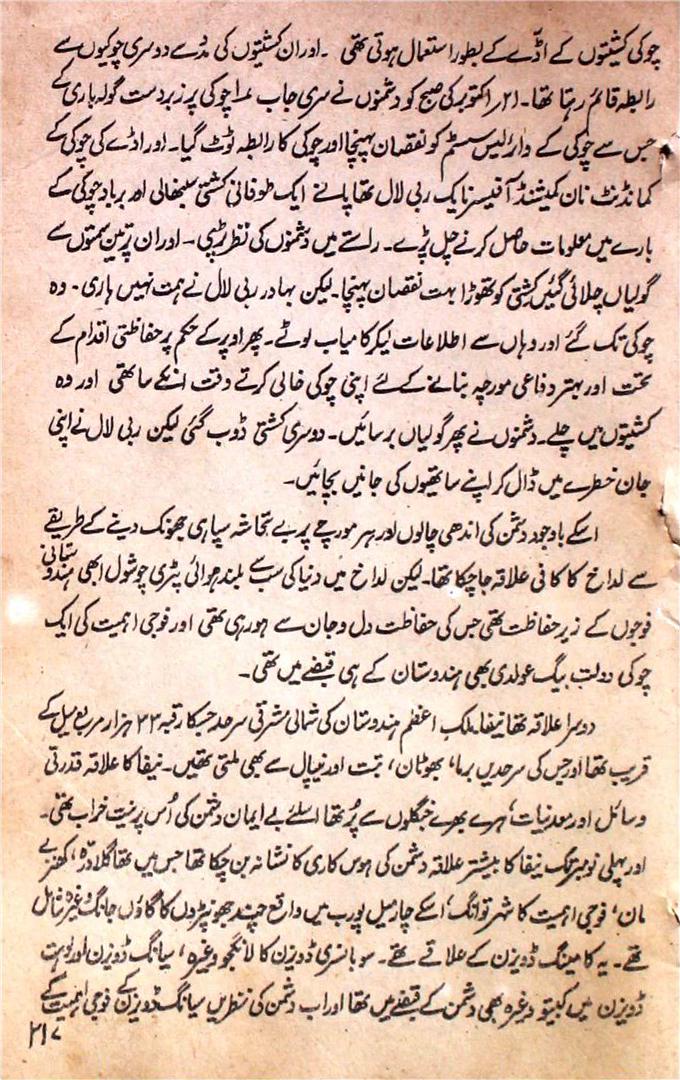 چوکی کشتیوں کے اڈّے کے بطور استعمال ہوتی تھی ۔ اور ان کشتیوں کی مدد سے دوسری چوکیوں سے
رابطہ قائم رہتا تھا۔ ۲۱؍ اکتوبر کی صبح کو دشمنوں نے سری جاب ۱ چوکی پر زبردست گولہ باری کی
جس سے چوکی کے وائرلیس سسٹم کو نقصان پہنچا اور چوکی کا رابطہ ٹوٹ گیا۔ اور اڈے کی چوکی کے
کمانڈنٹ نان کمیشنڈ آفیسر نایک ربی لال تھاپا نے ایک طوفانی کشتی سنبھالی اور برباد چوکی کے
بارے میں معلومات حاصل کرنے چل پڑے۔ راستے میں دشمنوں کی نظر پڑی۔ اور ان پر تین سمتوں سے
گولیاں چلائی گئیں کشتی کو تھوڑا بہت نقصان پہنچا۔ لیکن بہادر ربی لال نے ہمت نہیں ہاری۔ وہ
چوکی تک گئے اور وہاں سے اطلاعات لیکر کامیاب لوٹے۔ پھر اوپر کے حکم پر حفاظتی اقدام کے
تحت اور بہتر دفاعی مورچہ بنانے کے لئے اپنی چوکی خالی کرتے وقت انکے ساتھی اور وہ
کشتیوں میں چلے۔ دشمنوں نے پھر گولیاں برسائیں۔ دوسری کشتی ڈوب گئی لیکن ربی لال نے اپنی
جان خطرے میں ڈال کر اپنے ساتھیوں کی جانیں بچائیں۔
اسکے باوجود دشمن کی اندھی چالوں اور ہر مورچے پر بے تحاشہ سپاہی جھونک دینے کے طریقے
سے لداخ کا کافی علاقہ جا چکا تھا۔ لیکن لداخ میں دنیا کی سب سے بلند ہوائی پٹری چوشول ابھی ہندوستانی
فوجوں کے زیر حفاظت تھی جس کی حفاظت دل و جان سے ہو رہی تھی اور فوجی اہمیت کی ایک
چوکی دولت بیگ عولدی بھی ہندوستان کے ہی قبضے میں تھی۔
دوسرا علاقہ تھا نیفا۔ ملک اعظم ہندوستان کی شمالی مشرقی سرحد جسکا رقبہ ۳۳ ہزار مربع میل کے
قریب تھا اور جس کی سرحدیں برما، بھوٹان، تبت اور نیپال سے بھی ملتی تھیں۔ نیفا کا علاقہ قدرتی
وسائل اور معدنیات، ہرے بھرے جنگلوں سے پُر تھا اسلئے بے ایمان دشمن کی اُس پر نیت خراب تھی۔
اور پہلی نومبر تک نیفا کا بیشتر علاقہ دشمن کی ہوس کاری کا نشانہ بن چکا تھا جس میں تھاگلا درّہ،
مان، فوجی اہمیت کا شہر توانگ، اسکے چار میل پورب میں واقع چند جھونپڑوں کا گاؤں جانگ وغیرہ شامل
تھے۔ یہ کامینگ ڈویزن کے علاقے تھے۔ سوبانسری ڈویزن کا وغیرہ، سیانگ ڈویزن اور لوہت
ڈویزن میں کبیتو وغیرہ بھی دشمن کے قبضے میں تھا اور اب دشمن کی نظریں سیانگ ڈویزن کے فوجی اہمیت کے
۲۱۷